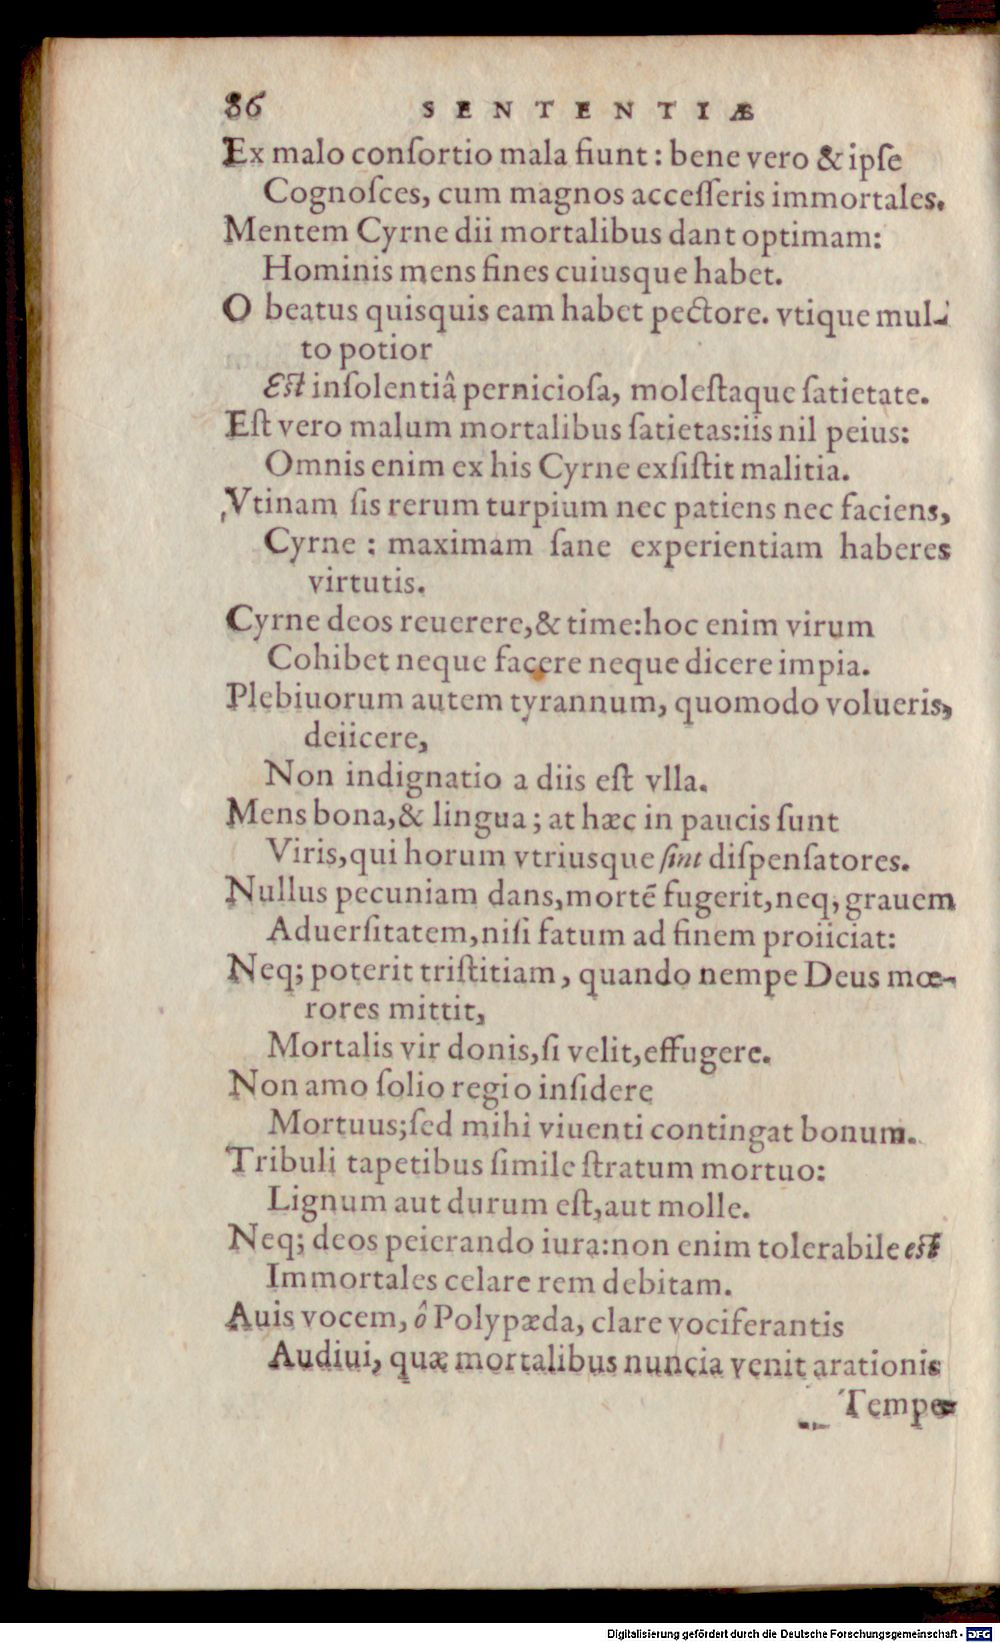 86 SENTENTIÆ
Ex malo conſortio mala fiunt : bene vero & ipſe
Cognoſces, cum magnos acceſſeris immortales.
Mentem Cyrne dii mortalibus dant optimam:
Hominis mens fines cuiusque habet.
O beatus quisquis eam habet pectore. vtique mul-
to potior
Eſt inſolentiâ pernicioſa, moleſtaque ſatietate.
Eſt vero malum mortalibus ſatietas:iis nil peius:
Omnis enim ex his Cyrne exſiſtit malitia.
Vtinam ſis rerum turpium nec patiens nec faciens,
Cyrne : maximam ſane experientiam haberes
virtutis.
Cyrne deos reuerere,& time:hoc enim virum
Cohibet neque facere neque dicere impia.
Plebiuorum autem tyrannum, quomodo volueris,
deiicere,
Non indignatio a diis eſt vlla.
Mens bona,& lingua ; at hæc in paucis ſunt
Viris,qui horum vtriusque ſint diſpenſatores.
Nullus pecuniam dans,mortē fugerit,neq; grauem
Aduerſitatem,niſi fatum ad finem proiiciat:
Neq; poterit triſtitiam, quando nempe Deus mœ-
rores mittit,
Mortalis vir donis,ſi velit,effugere.
Non amo ſolio regio inſidere
Mortuus;ſed mihi viuenti contingat bonum.
Tribuli tapetibus ſimile ſtratum mortuo:
Lignum aut durum eſt,aut molle.
Neq; deos peierando iura:non enim tolerabile eſt
Immortales celare rem debitam.
Auis vocem, ô Polypæda, clare vociferantis
Audiui, quæ mortalibus nuncia venit arationis
Tempe-
Digitalisierung gefördert durch die Deutsche Forschungsgemeinschaft - DFG